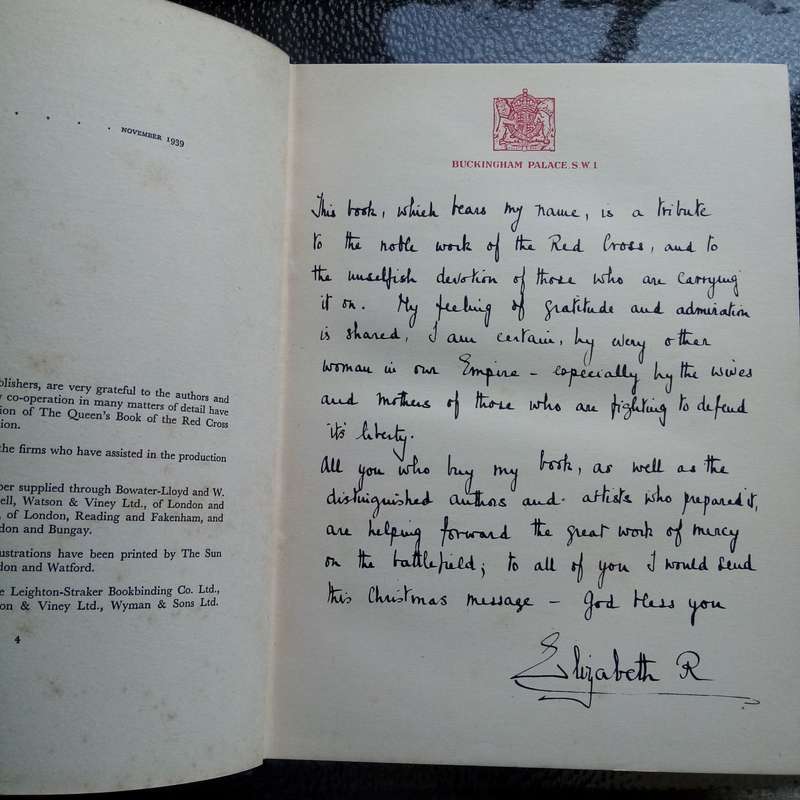 NOVEMBER 1939
blishers, are very grateful to the authors and
co-operation in many matters of detail have
ion of The Queen's Book of the Red Cross
ion.
the firms who have assisted in the production
per supplied through Bowater-Lloyd and W.
ell, Watson & Viney Ltd., of London and
, of London, Reading and Fakenham, and
don and Bungay.
ustrations have been printed by The Sun
don and Watford.
e Leighton-Straker Bookbinding Co. Ltd.,
on & Viney Ltd., Wyman & Sons Ltd.
4
BUCKINGHAM PALACE. S.W.1
This book, which bears my name, is a tribute
to the noble work of the Red Cross, and to
the unselfish devotion of those who are carrying
it on. My feeling of gratitude and admiration
is shared, I am certain, by every other
woman in our Empire – especially by the wives
and mothers of those who are fighting to defend
it's liberty.
All you who buy my book, as well as the
distinguished authors and artists who prepared it,
are helping forward the great work of mercy
on the battlefield; to all of you I would send
this Christmas message – God bless you
Elizabeth R